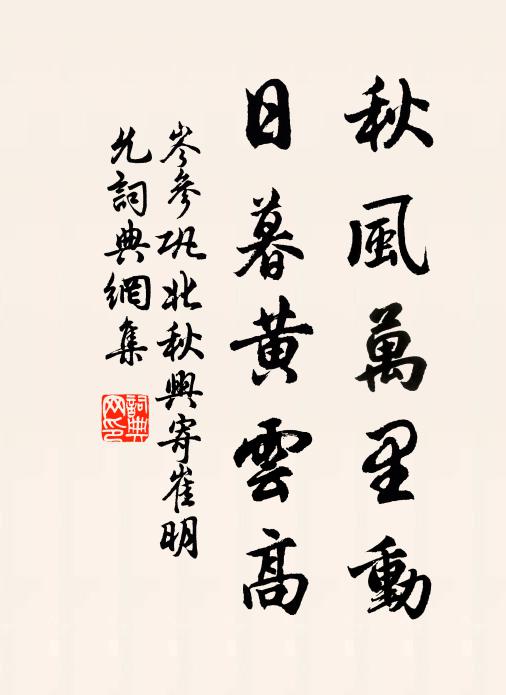 秋風萬里動
日暮黃雲高
岑參巩北秋興寄崔明
允詞典網集
詞典
网印